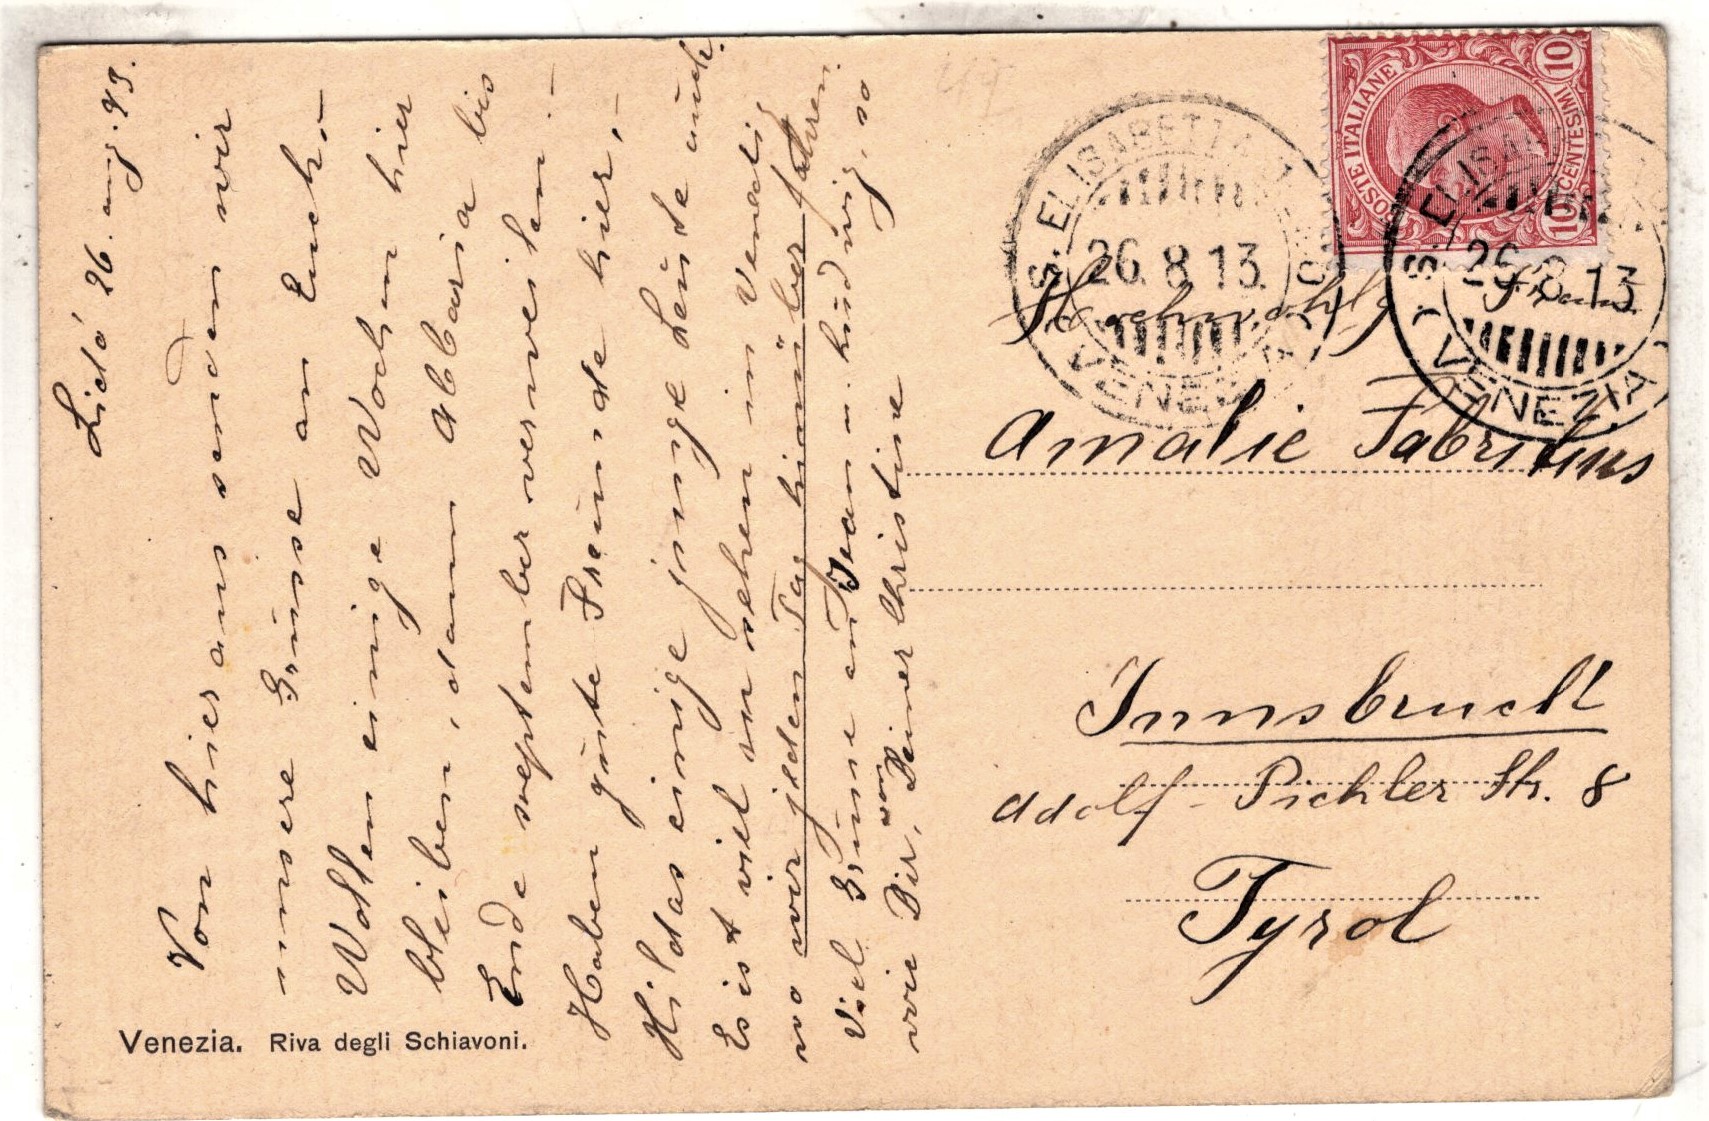 Lido 26. Aug. 13.
Von hier aus senden wir
unsere Grüsse an Euch.–
Wollen einige Wochen hier
bleiben, dann Abbazia bis
Ende September verweilen.–
Haben gute Freunde hier,–
Hildas einige junge Leute auch.
Es ist viel zu sehen in Venedig
wo wir jeden Tag hinüber fahren.
Viel Grüsse an Jean u. Ludwig, so
wie Dir, von Deiner Christine
Venezia. Riva degli Schiavoni.
POSTE ITALIANE
10 CENTESIMI 10
S. ELISABETTA
26. 8 13.
VENEZIA
S. ELISABETTA
26 8 13
VENEZIA
Hochwohlg. Frau
Amalie Fabritius
Innsbruck
Adolf-Pichler Str. 8
Tyrol